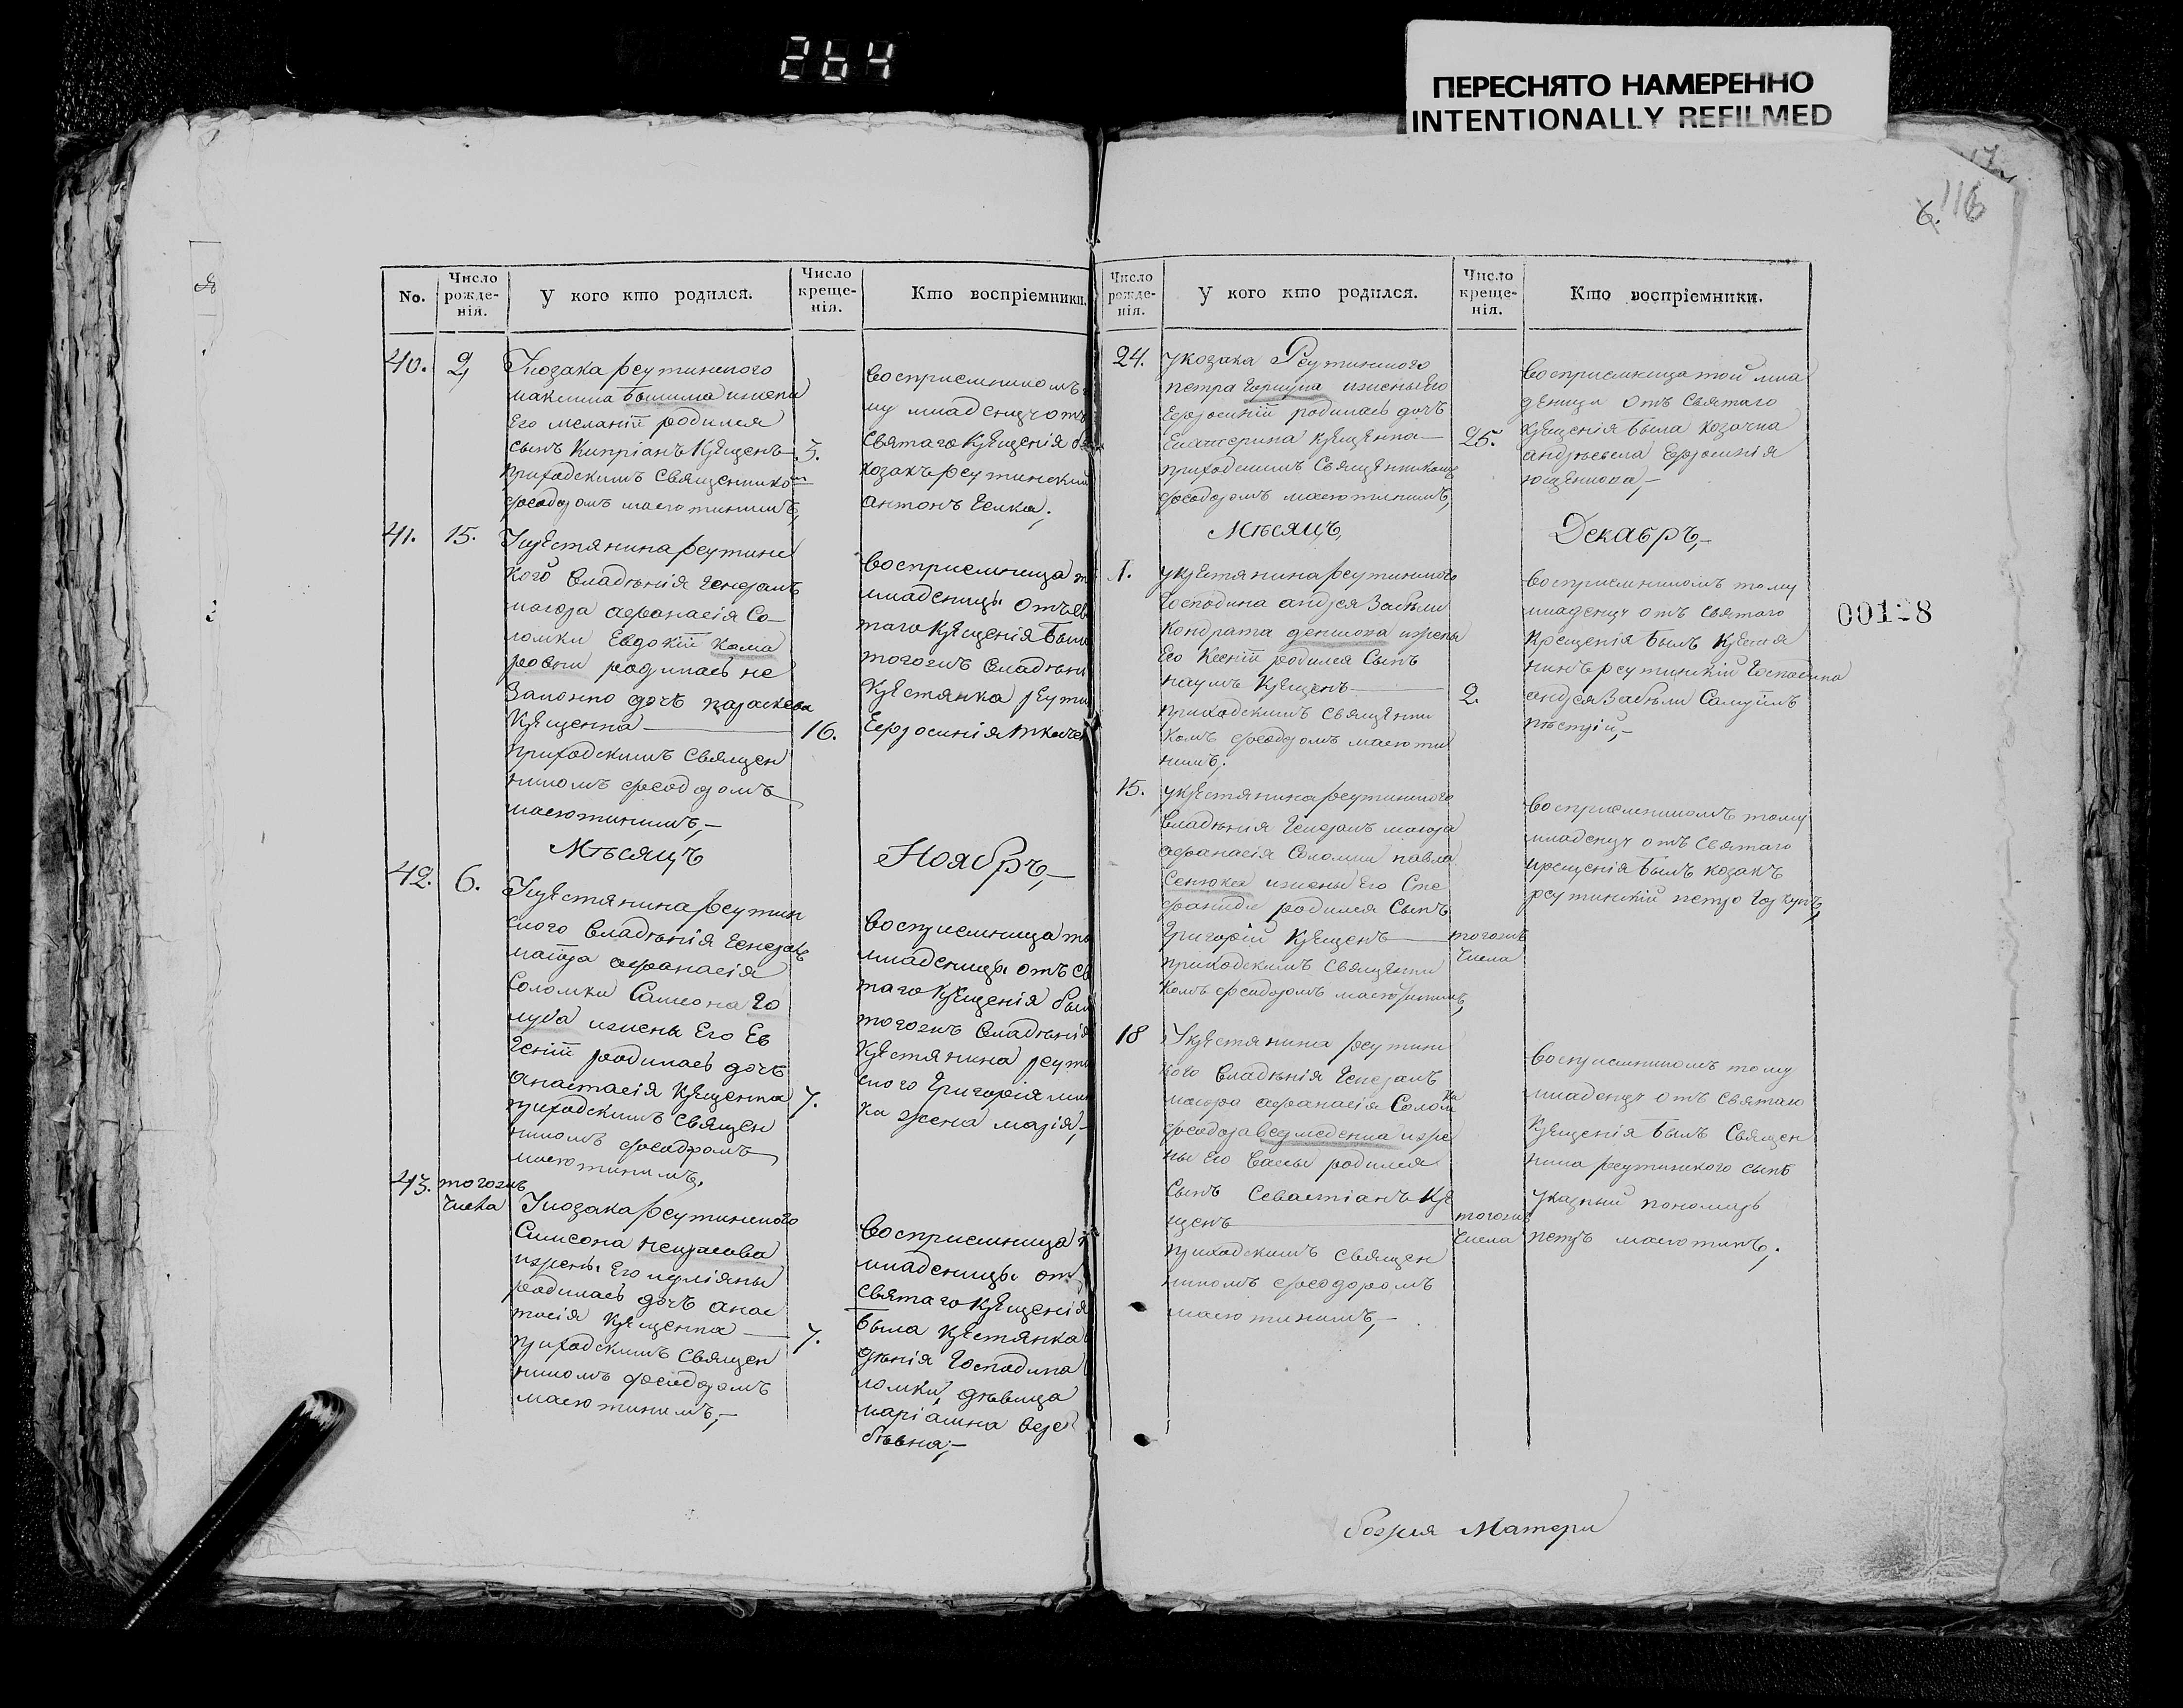 264
ПЕРЕСНЯТО НАМЕРЕННО
INTENTIONALLY REFILMED
6. 116
No.
Число рожде-нія.
У кого кто родился.
Число креще-нія.
Кто воспріемники.
40. 2
У козака реутинского
максима изжены
Его меланіи родился
сынъ Кипріанъ Крещенъ 3.
приходскимъ Священником
феодоромъ масютинимъ,
Восприемникомъ
му младенцу отъ
Святаго Крещенія
козакъ реутинский
антонъ
41. 15.
У крестянина реутинс
кого владѣнія Генералъ
маіора афанасія Со
ломки Евдокіи Кома
ровни родилась не
Законно дочь параскева
Крещенна 16.
приходскимъ Священ
никомъ феодоромъ
масютинимъ,
Восприемница
младеницы отъ
таго Крещенія
тогожъ владѣнія
Крестянка
Ефросинія
Мѣсяцъ Ноябръ,
42. 6.
У крестянина реутин
ского владѣнія Генералъ
маіора афанасія
Соломки Самсона Го
луба изжены Его Ев
гении родилась дочь
анастасія Крещенна 7.
приходскимъ Священ
никомъ феодоромъ
масютинимъ.
Восприемница
младеницы отъ
таго Крещенія
тогожъ владѣнія
Крестянина
ского Григорія
ка жена марія,
43. тогожъ Числа
У козака реутинского
Симеона некрасова
изжены Его иуліяны
родилась дочь анас
тасія Крещенна 7.
приходскимъ Священ
никомъ феодоромъ
масютинимъ,
Восприемница
младеницы от
Святаго Крещенія
была Крестянка
дѣнія Господина
ломки, дѣвица
маріанна
Число рожде-нія.
У кого кто родился.
Число креще-нія.
Кто воспріемники.
24.
У козака Реутинского
петра Горкуна изжены Его
Ефросиніи родилась дочь
Екатерина крещенна 25.
приходскимъ Священникомъ
феодоромъ масютинимъ,
Восприемница той мла
деници отъ Святаго
Крещенія была козачка
Ефросинія
Мѣсяцъ Декабръ,
1.
У крестянина реутинского
Господина андрея Забѣли
Кондрата изжены
Его Ксеніи родился Сынъ
наумъ Крещенъ 2.
приходскимъ Священни
комъ феодоромъ масюти
нимъ,
Восприемникомъ тому
младенцу отъ Святаго
Крещенія былъ Крестя
нинъ реутинскій Господина
андрея Забѣли Самуилъ
15.
У крестянина реутинского
владѣнія Генералъ маіора
афанасія Соломки павла
Сенюка изжены Его Сте
фаниди родился Сынъ
Григорій Крещенъ тогожъ Числа
приходскимъ Священни
комъ феодоромъ масютинимъ,
Восприемникомъ тому
младенцу отъ Святаго
крещенія былъ козакъ
реутинскій петръ Горкунъ,
18
У крестянина реутинс
кого владѣнія Генералъ
маіора афанасія Соломки
феодора ведмеденка изже
ны Его Вассы родился
Сынъ Севастіанъ Кре
щенъ тогожъ Числа
приходскимъ Священ
никомъ феодоромъ
масютинимъ,
Восприемникомъ тому
младенцу отъ Святаго
Крещенія былъ Священ
ника реутинского сынъ
указный пономарь
петръ масютинъ,
Божия Матери